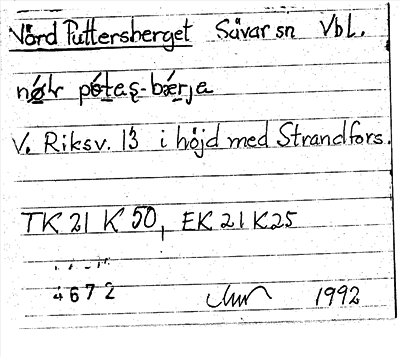 Nörd Puttersberget Sävar sn Vbl.
nǿʟr pótas̨-bǽrjɐ
V. Riksv. 13 i höjd med Strandfors.
TK 21 K 50, EK 21 K 25
4672 1992